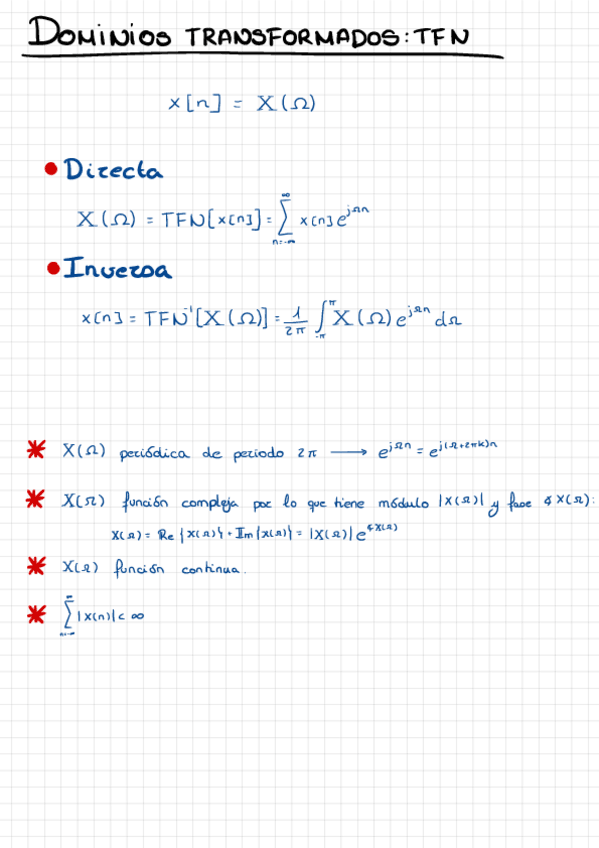 DOMINIOS TRANSFORMADOS: TFN
x[n] = X(Ω)
Directa
X(Ω) = TFN[x[n]] = ∑_{n=-∞}^{∞} x[n] e^{jΩn}
Inversa
x[n] = TFN^{-1}[X(Ω)] = \frac{1}{2π} ∫_{-π}^{π} X(Ω) e^{jΩn} dΩ
X(Ω) periódica de periodo 2π ⟶ e^{jΩn} = e^{j(Ω+2πk)n}
X(Ω) función compleja por lo que tiene módulo |X(Ω)| y fase ∢X(Ω):
X(Ω) = Re{X(Ω)} + Im{X(Ω)} = |X(Ω)| e^{∢X(Ω)}
X(Ω) función continua.
∑_{n=-∞}^{∞} |x(n)| < ∞